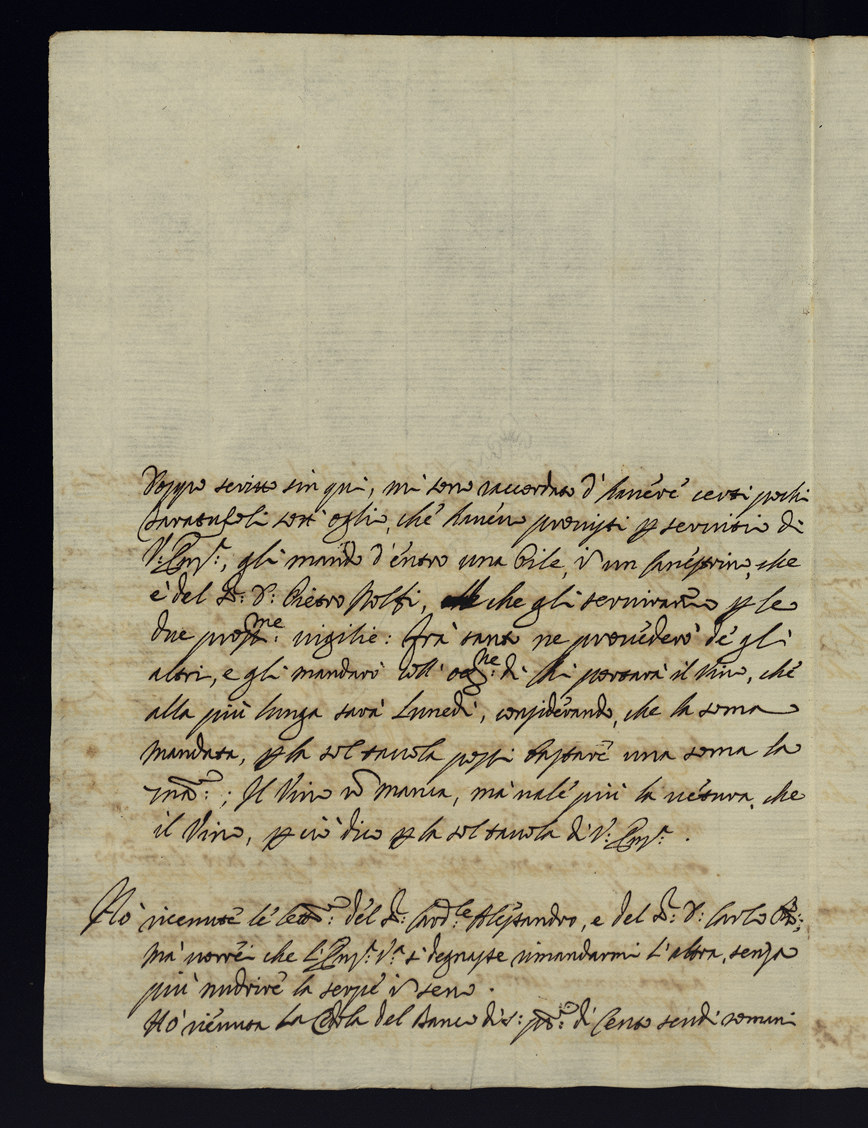 Doppo scritto sin qui, mi sono raccordato d'havere certi pochi
Taratufoli sott'oglio, che havevo provisti p servitio di
V: Em:ª, gli mando d'entro una Pile, i un canestrino, che
è del S:r D: Pietro Nolfi, che gli serviranno p le
due pross:me vigilie: frà tanto ne provederò de gli
altri, e gli mandarò coll' occ:ne di chi portarà il vino, che
alla più lunga sarà Lunedi, considerando, che la soma
mandata, p la sol tavola possi bastare una soma la
Il Vino nõ manca, mà vale più la vetura, che
il Vino, p ciò dico p la sol tavola di V: Em:ª.
Hò ricevute le lett:re del S:r Card:le Alessandro, e del S:r D: Carlo
mà vorrei che l'Em:ª V:ª si degnasse rimandarmi l'altra, senza
più nudrire la serpe i seno.
Hò ricevuta la Cedola del Banco di S: di Cento scudi romani